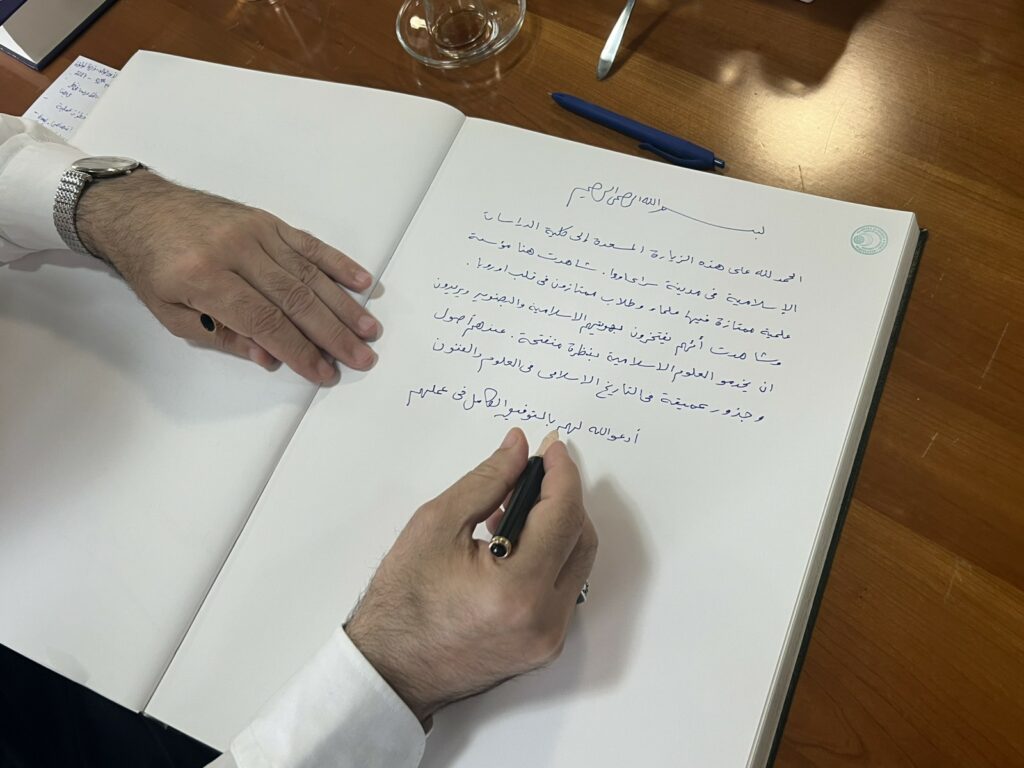 بسم الله الرحمن الرحيم
الحمد لله على هذه الزيارة المسعدة إلى كلية الدراسات
الإسلامية في مدينة سراى‌فوا. شاهدت هنا مؤسسة
علمية ممتازة فيها علماء وطلاب ممتازون في قلب اوروبا.
وشاهدت أنهم يفتخرون بهويتهم الاسلامية والبوسنوية ويريدون
ان يخدمو العلوم الاسلامية بنظرة منفتحة. عندهم أصول
و جذور عميقة في التاريخ الاسلامى في العلوم والفنون
أدعو الله لهم بالتوفيق الكامل في عملهم